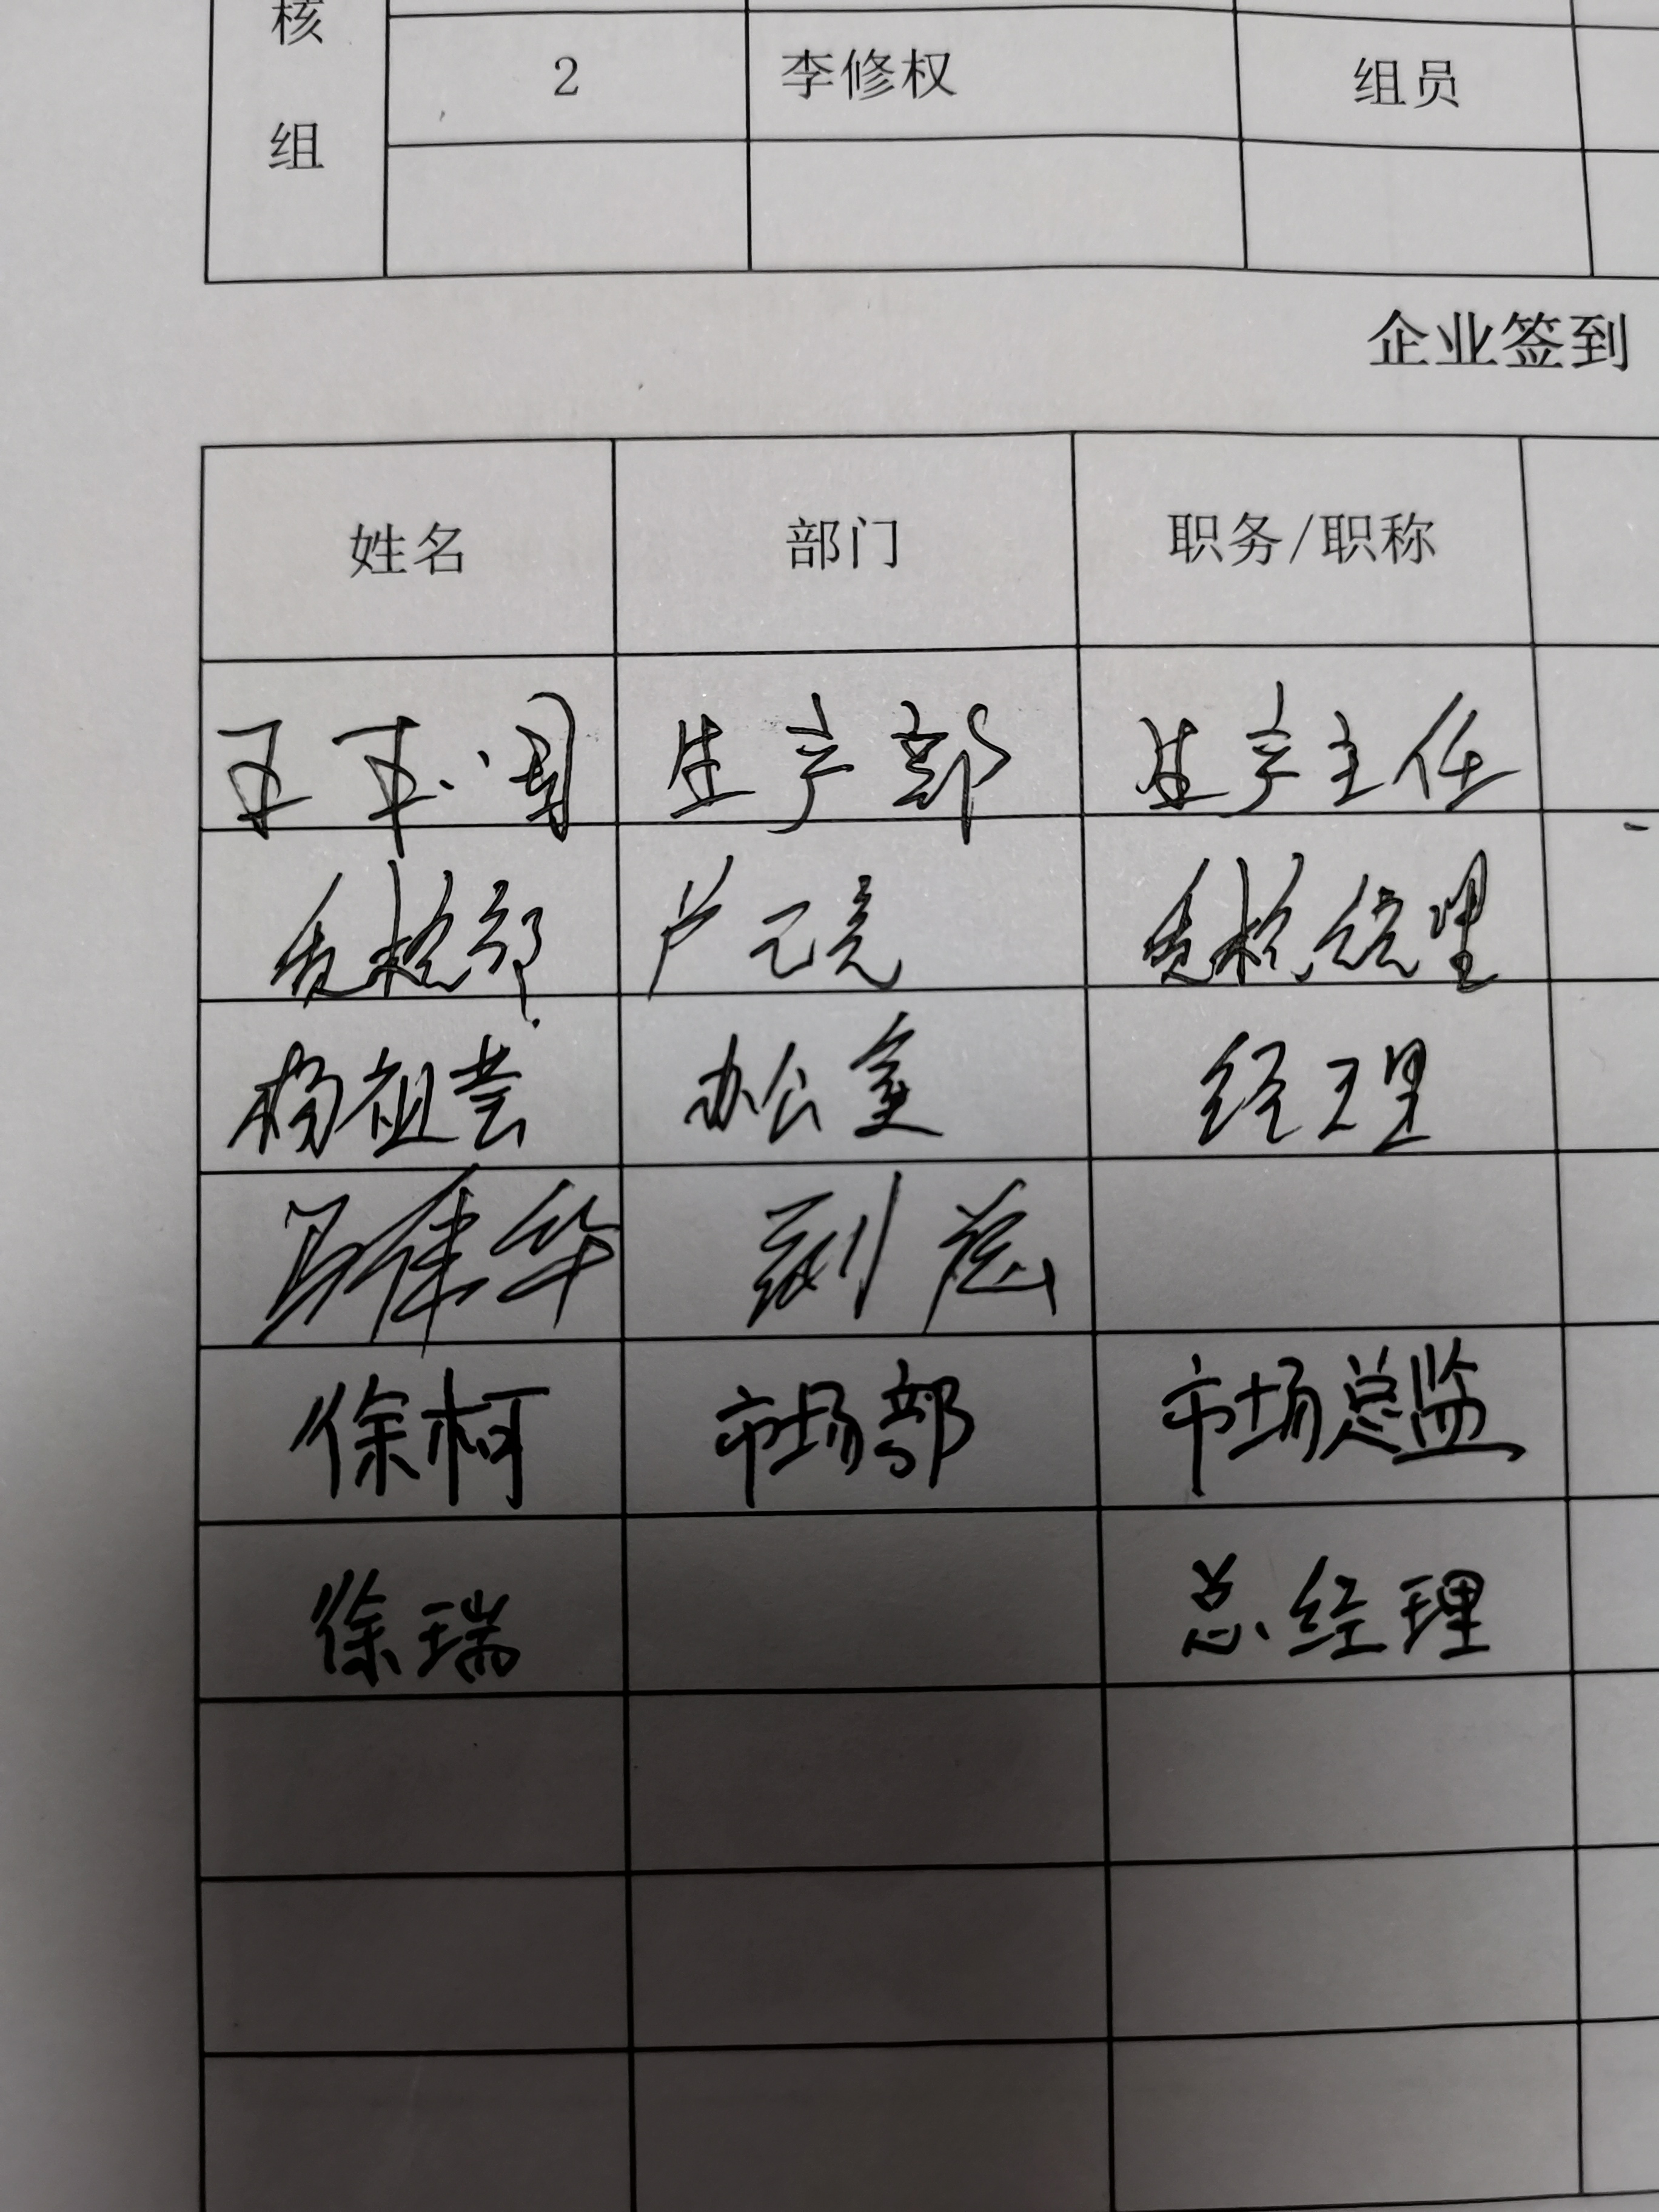 核
2 李修权 组员
组
企业签到
姓名 部门 职务/职称
王 生产部 生产主任
质检部 质检经理
杨祖芸 办公室 经理
马 华 副总
徐柯 市场部 市场总监
徐瑞 总经理